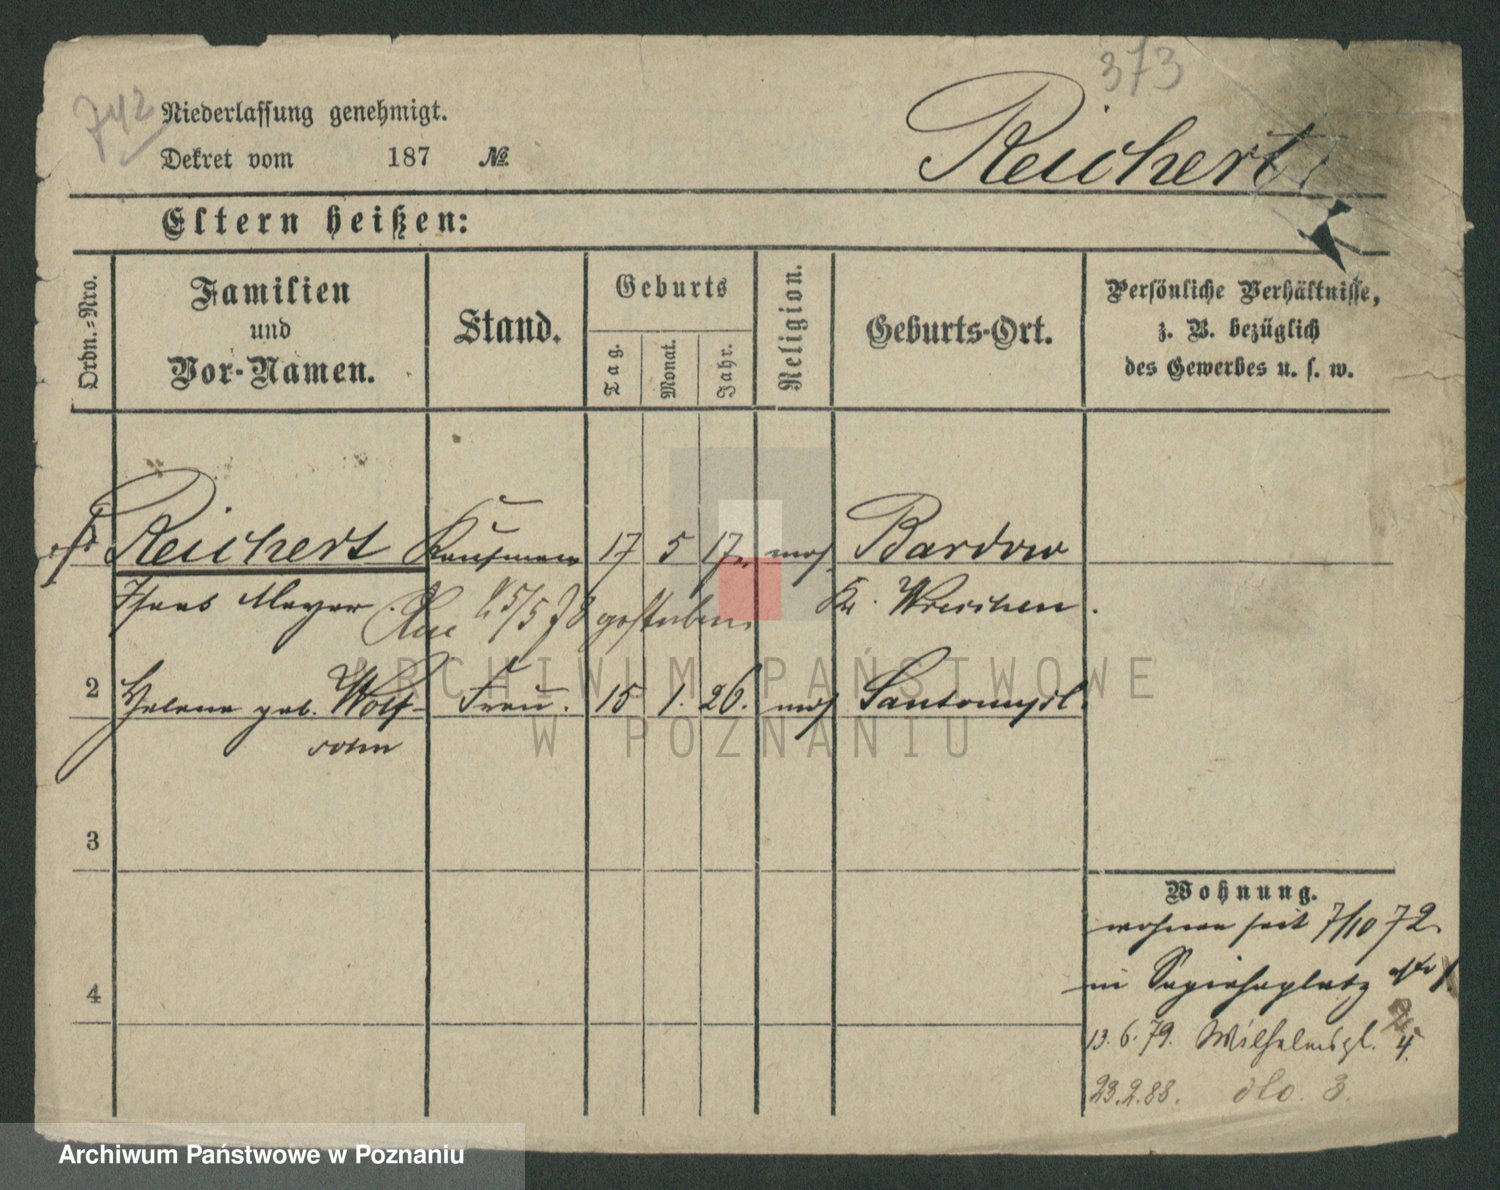 373
742
Niederlassung genehmigt.
Dekret vom 187 №
Reichert
Eltern heißen:
Ordn.-Nro.
Familien und Vor-Namen.
Stand.
Geburts
Tag.
Monat.
Jahr.
Religion.
Geburts-Ort.
Persönliche Verhältnisse,
z. B. bezüglich
des Gewerbes u. s. w.
Reichert Kaufmann 17 5 17. mos. Bardow
Meyer. 25/5 78 gestorben. Kr. Wreschen.
ARCHIWUM PAŃSTWOWE
2 Helene geb. Wolf- Frau. 15 1. 26. mos Santomysl.
sohn
W POZNANIU
3
Wohnung.
wohnen seit 7/10 72
4
in Sapiehaplatz
13.6.79. Wilhelmspl. 4.
23.2.88. dto. 3.
Archiwum Państwowe w Poznaniu